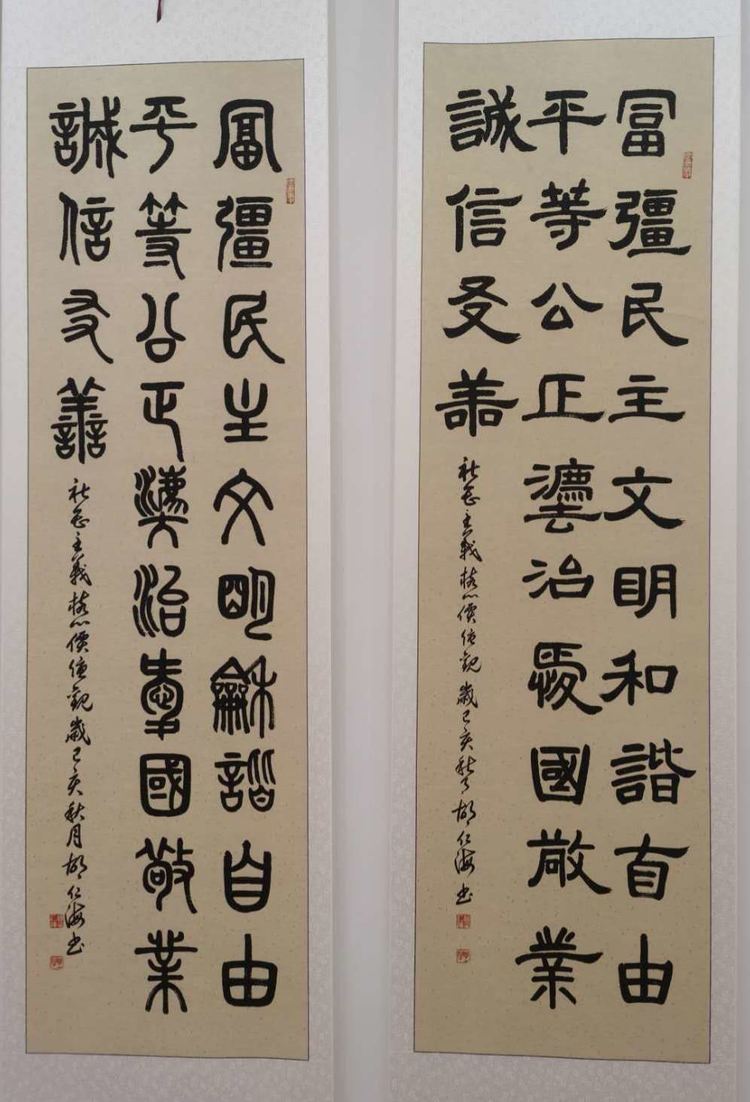 富彊民主文明和諧自由
平等公正灋治愛國敬業
誠信友善
社会主義核心價值觀 歲己亥秋月胡仁海书
富彊民主文明龢諧自由
平等公正灋治愛國敬業
誠信友善
社会主義核心價值觀 歲己亥秋月胡仁海书